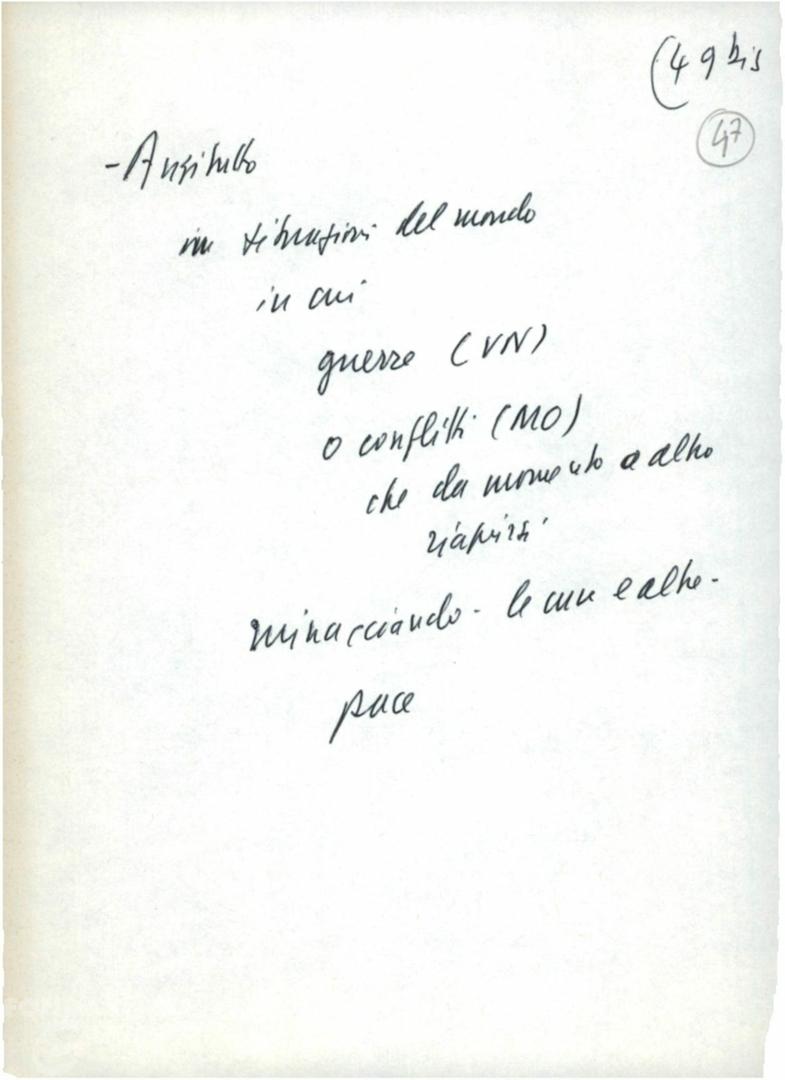 (49 bis
47
- Anzitutto
in situazioni del mondo
in cui
guerre (VN)
o conflitti (MO)
che da momento a altro
riaprirsi
minacciando - le une e altre -
pace